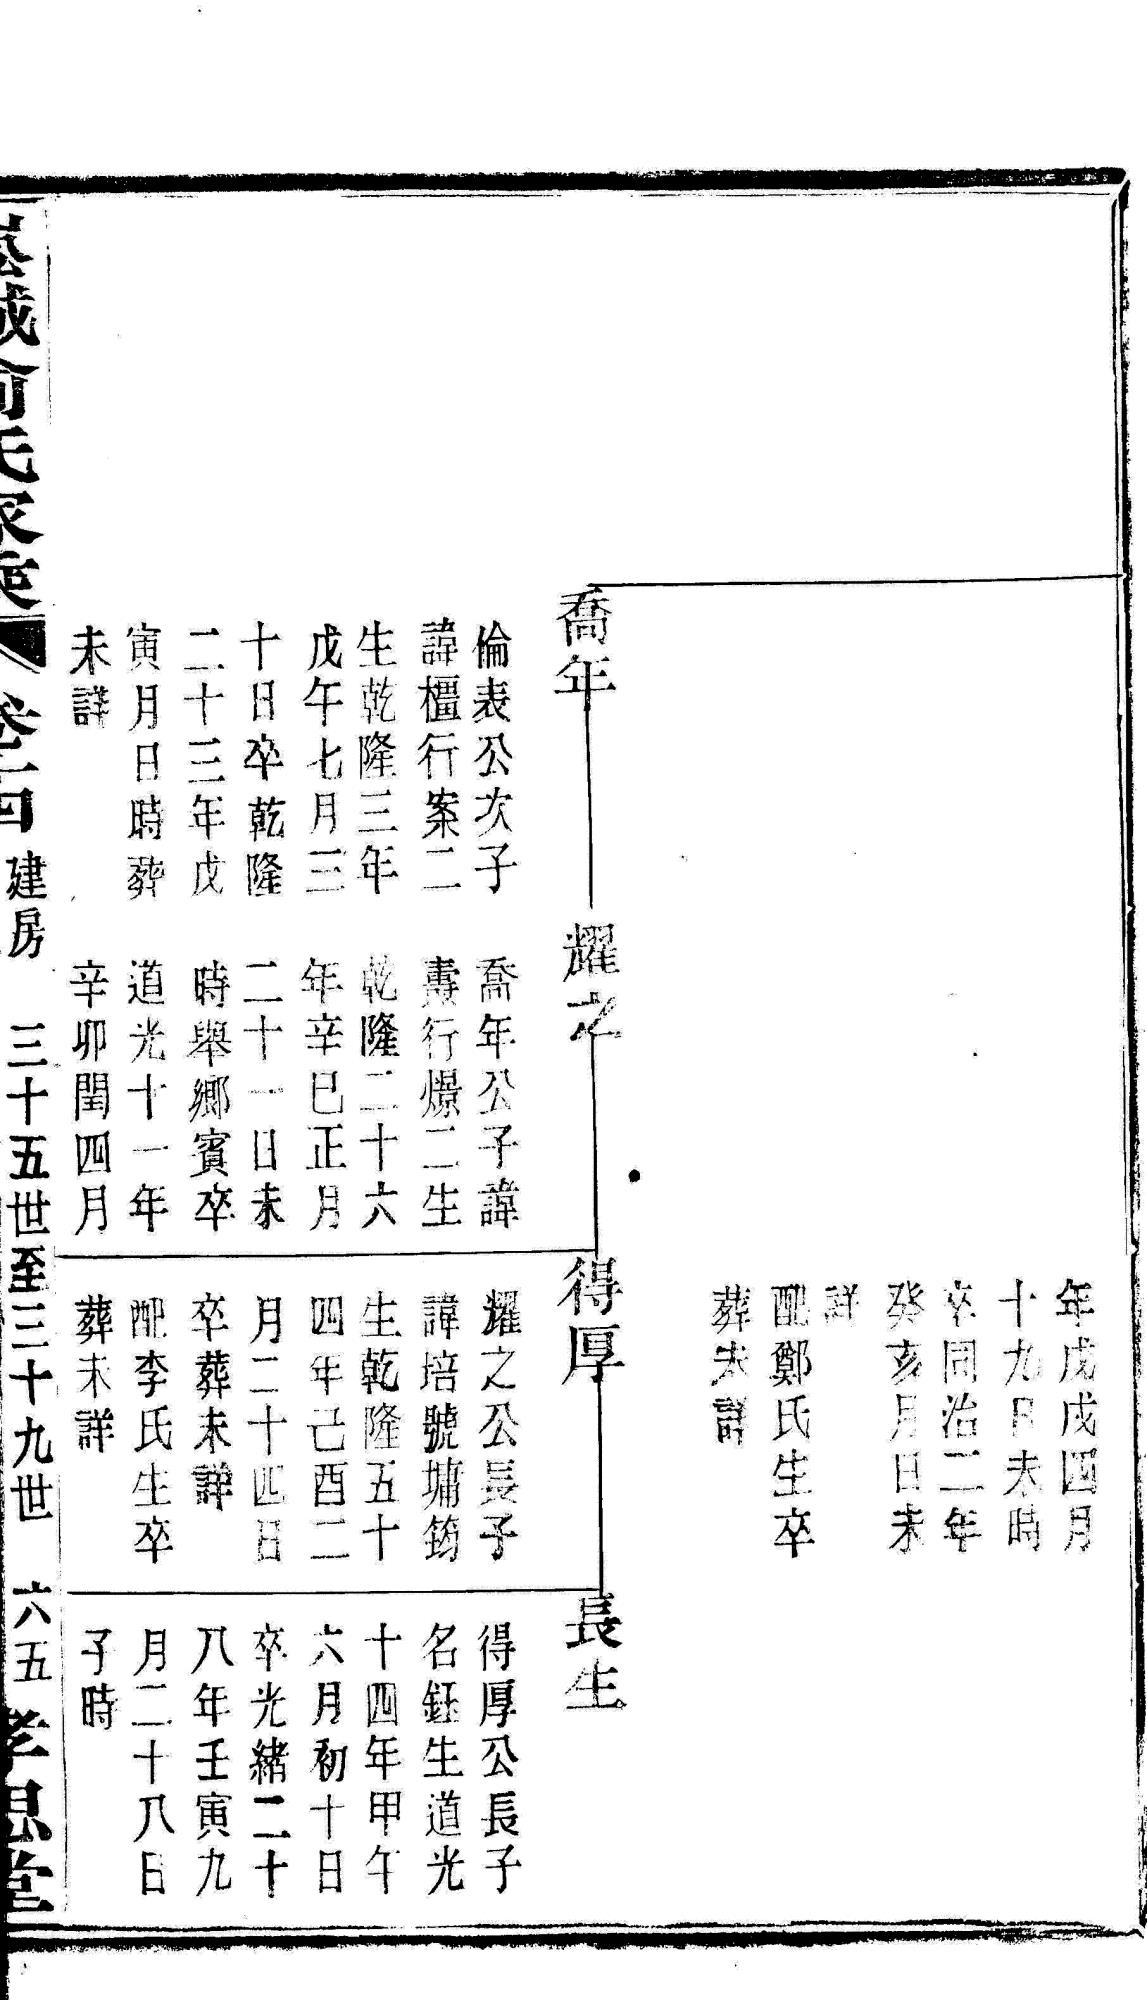 年戊戌四月
十九日未時
卒同治二年
癸亥月日未
詳
配鄭氏生卒
葬未詳
喬年
倫表公次子
諱橿行案二
生乾隆三年
戊午七月三
十日卒乾隆
二十三年戊
寅月日時葬
未詳
耀之
喬年公子諱
壽行燝二生
乾隆二十六
年辛巳正月
二十一日未
時舉鄉賓卒
道光十一年
辛卯閏四月
得厚
耀之公長子
諱培號墉筠
生乾隆五十
四年己酉二
月二十四日
卒葬未詳
配李氏生卒
葬未詳
長生
得厚公長子
名鈺生道光
十四年甲午
六月初十日
卒光緒二十
八年壬寅九
月二十八日
子時
城俞氏家乘 卷十四 建房 三十五世至三十九世 六五 孝思堂